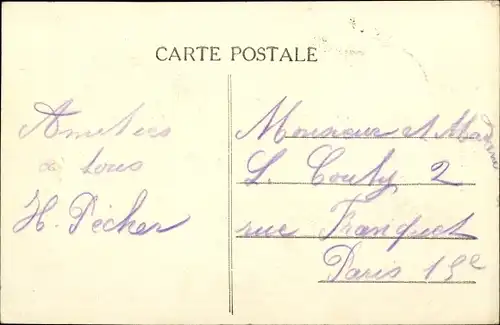 CARTE POSTALE
Amitiés
à tous
H. Pécher
Monsieur et Madame
L. Couty 2
rue Franquet
Paris 15e